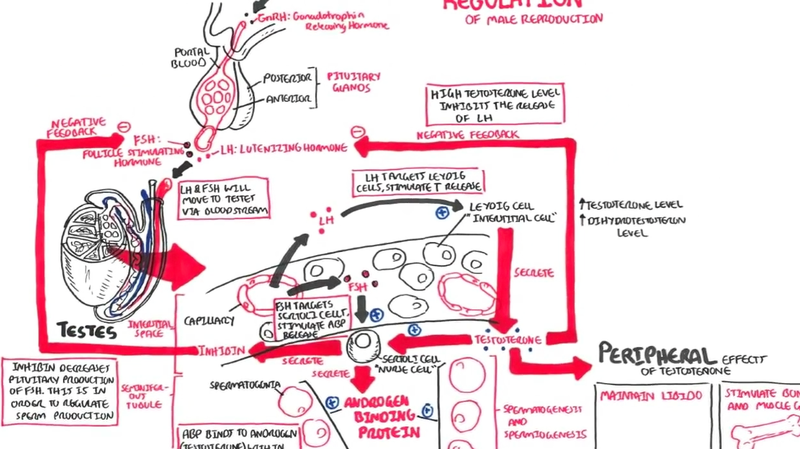 REGULATION
OF MALE REPRODUCTION
GnRH: Gonadotrophin
Releasing Hormone
PORTAL
BLOOD
POSTERIOR
ANTERIOR
PITUITARY
GLANDS
HIGH TESTOSTERONE LEVEL
INHIBIT THE RELEASE
OF LH
NEGATIVE
FEEDBACK
NEGATIVE FEEDBACK
FSH:
FOLLICLE STIMULATING
HORMONE
LH: LUTENIZING HORMONE
LH & FSH WILL
MOVE TO TESTES
VIA BLOODSTREAM
LH TARGETS LEYDIG
CELLS, STIMULATE T RELEASE
LH
LEYDIG CELL
"INTERSTITIAL CELL"
↑ TESTOSTERONE LEVEL
↑ DIHYDROTESTOTERON
LEVEL
SECRETE
FSH
CAPILLARY
FSH TARGETS
SERTOLI CELLS,
STIMULATE ABP
RELEASE
TESTES
INTERSTITIAL
SPACE
INHIBIN
SECRETE
SECRETE
SERTOLI CELL
"NURSE CELL"
TESTOSTERONE
PERIPHERAL EFFECT
OF TESTOSTERONE
INHIBIN DECREASES
PITUITARY PRODUCTION
OF FSH. THIS IS IN
ORDER TO REGULATE
SPERM PRODUCTION
SEMINIFER-
OUS
TUBULE
SPERMATOGONIA
ANDROGEN
BINDING
PROTEIN
SPERMATOGENESIS
AND
SPERMIOGENESIS
MAINTAIN LIBIDO
STIMULATE BON
AND MUSCLE G
ABP BINDS TO ANDROGEN
(TESTOSTERONE) WITHIN